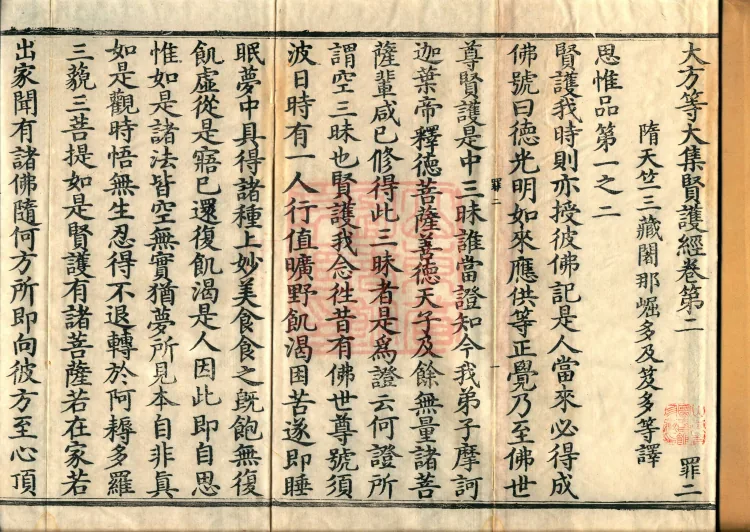 大方等大集賢護經卷第二　罪二
隋天竺三藏闍那崛多及笈多等譯
思惟品第一之二
賢護我時則亦授彼佛記是人當來必得成
佛號曰德光明如來應供等正覺乃至佛世
尊賢護是中三昧誰當證知今我弟子摩訶
罪二
迦葉帝釋德菩薩善德天子及餘無量諸菩
薩輩咸已修得此三昧者是爲證云何證所
謂空三昧也賢護我念徃昔有佛世尊號須
波日時有一人行值曠野飢渴困苦遂即睡
眠夢中具得諸種上妙美食食之旣飽無復
飢虛從是寤已還復飢渴是人因此即自思
惟如是諸法皆空無實猶夢所見本自非真
如是觀時悟無生忍得不退轉於阿耨多羅
三藐三菩提如是賢護有諸菩薩若在家若
出家聞有諸佛隨何方所即向彼方至心頂